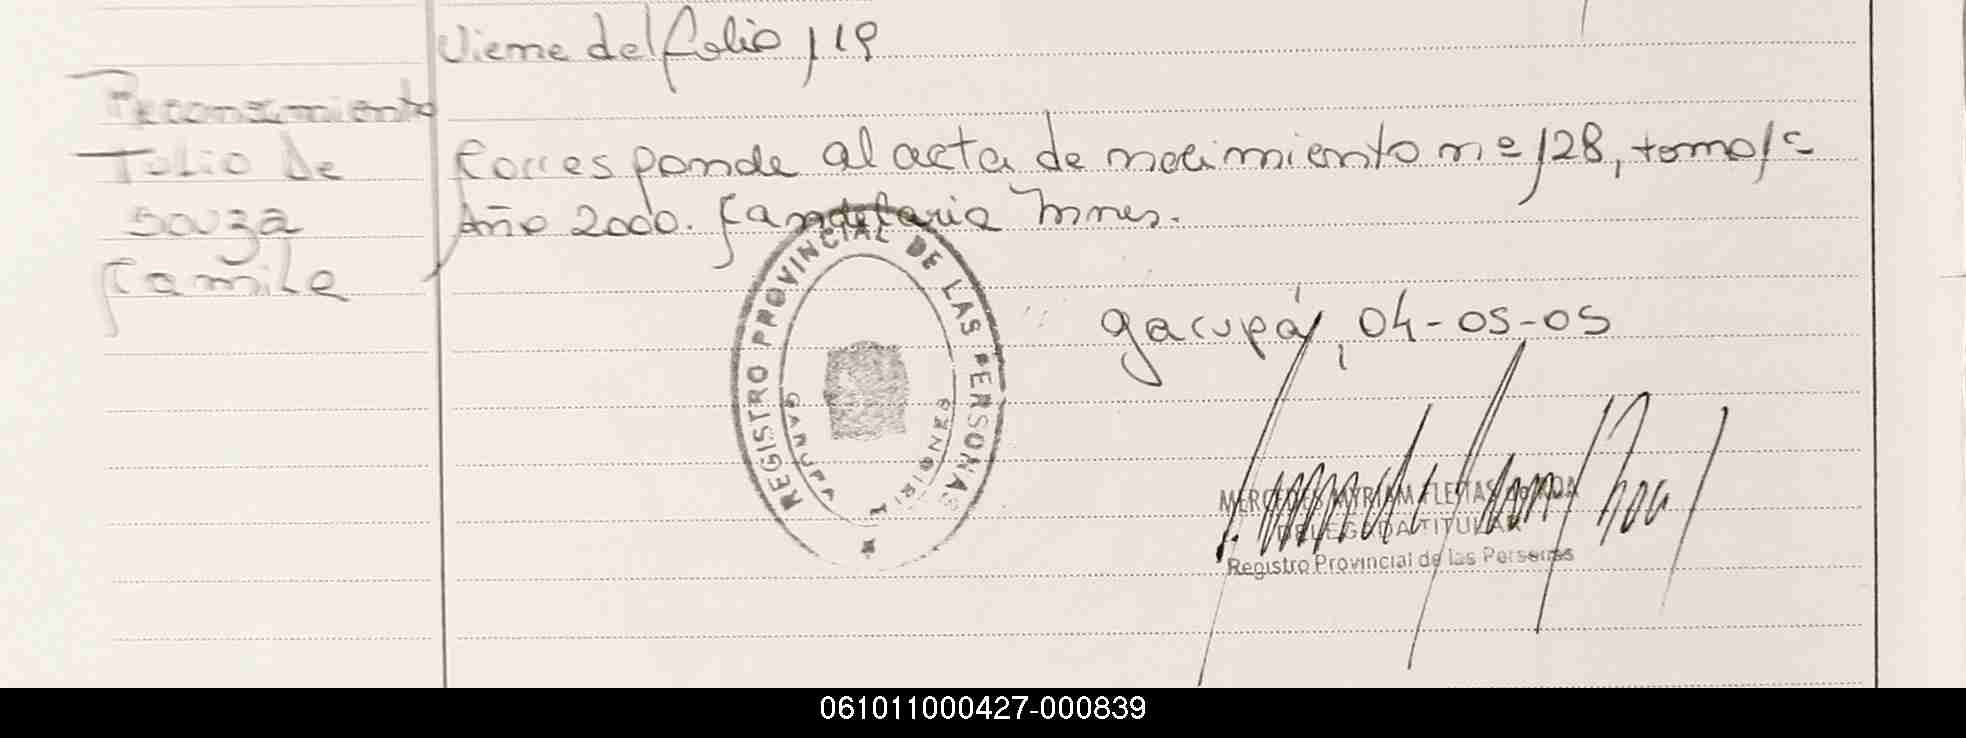 Viene del folio 119
Reconocimiento
Tulio De
Souza
Camile
Corresponde al acta de nacimiento nº 128, tomo 1º
Año 2000. Candelaria Mnes.
REGISTRO PROVINCIAL DE LAS PERSONAS
GARUPA
MISIONES
Garupá, 04-05-05
MERCEDES MYRIAM FLEITAS de RODA
DELEGADA TITULAR
Registro Provincial de las Personas
061011000427-000839